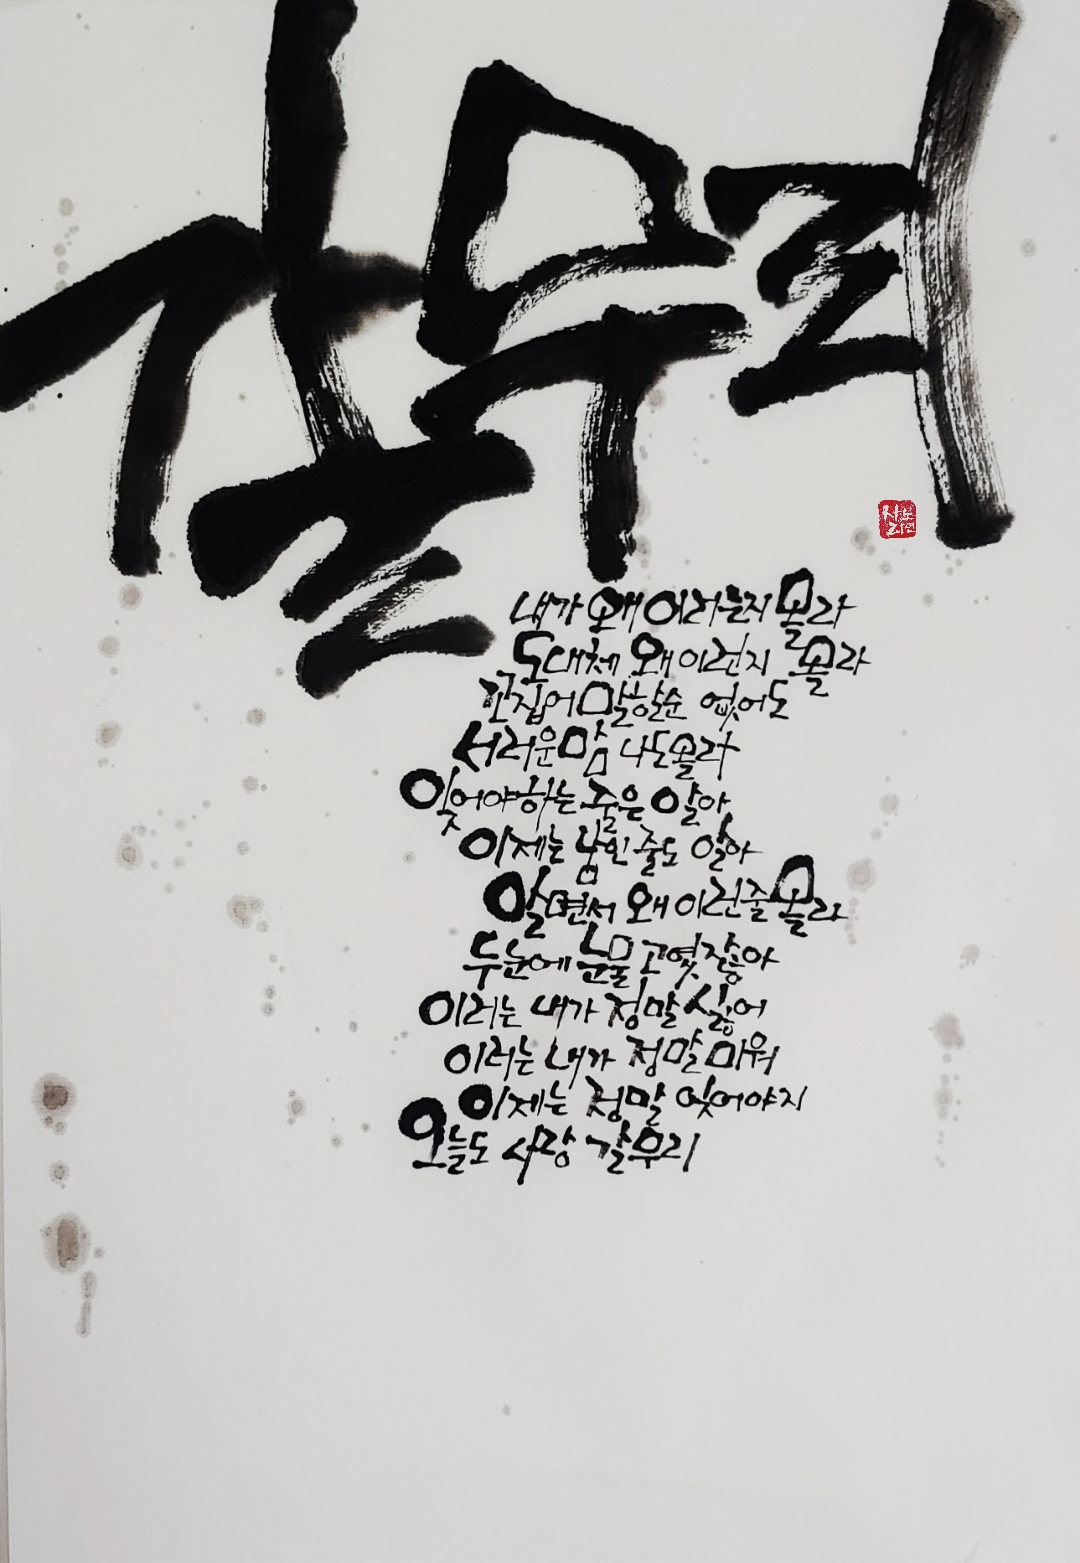 갈무리
내가 왜 이러는지 몰라
도대체 왜 이런지 몰라
꼬집어 말할순 없어도
서러운맘 나도몰라
잊어야하는 줄은 알아
이제는 남인줄도 알아
알면서 왜 이런줄 몰라
두눈에 눈물 고였잖아
이러는 내가 정말 싫어
이러는 내가 정말 미워
이제는 정말 잊어야지
오늘도 사랑 갈무리